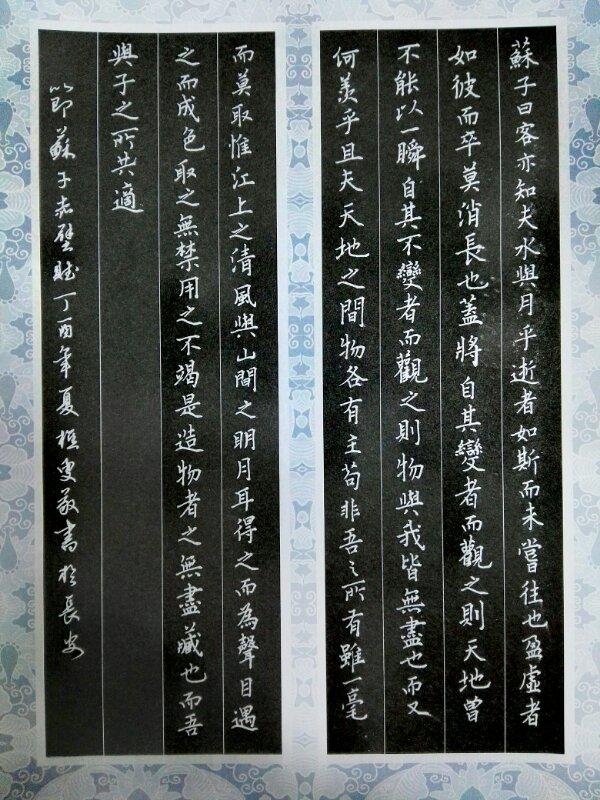 蘇子曰客亦知夫水與月乎逝者如斯而未嘗往也盈虛者
如彼而卒莫消長也蓋將自其變者而觀之則天地曾
不能以一瞬自其不變者而觀之則物與我皆無盡也而又
何羨乎且夫天地之間物各有主苟非吾之所有雖一毫
而莫取惟江上之清風與山間之明月耳得之而為聲目遇
之而成色取之無禁用之不竭是造物者之無盡藏也而吾
與子之所共適
節蘇子赤壁賦丁酉年夏 敬書於長安